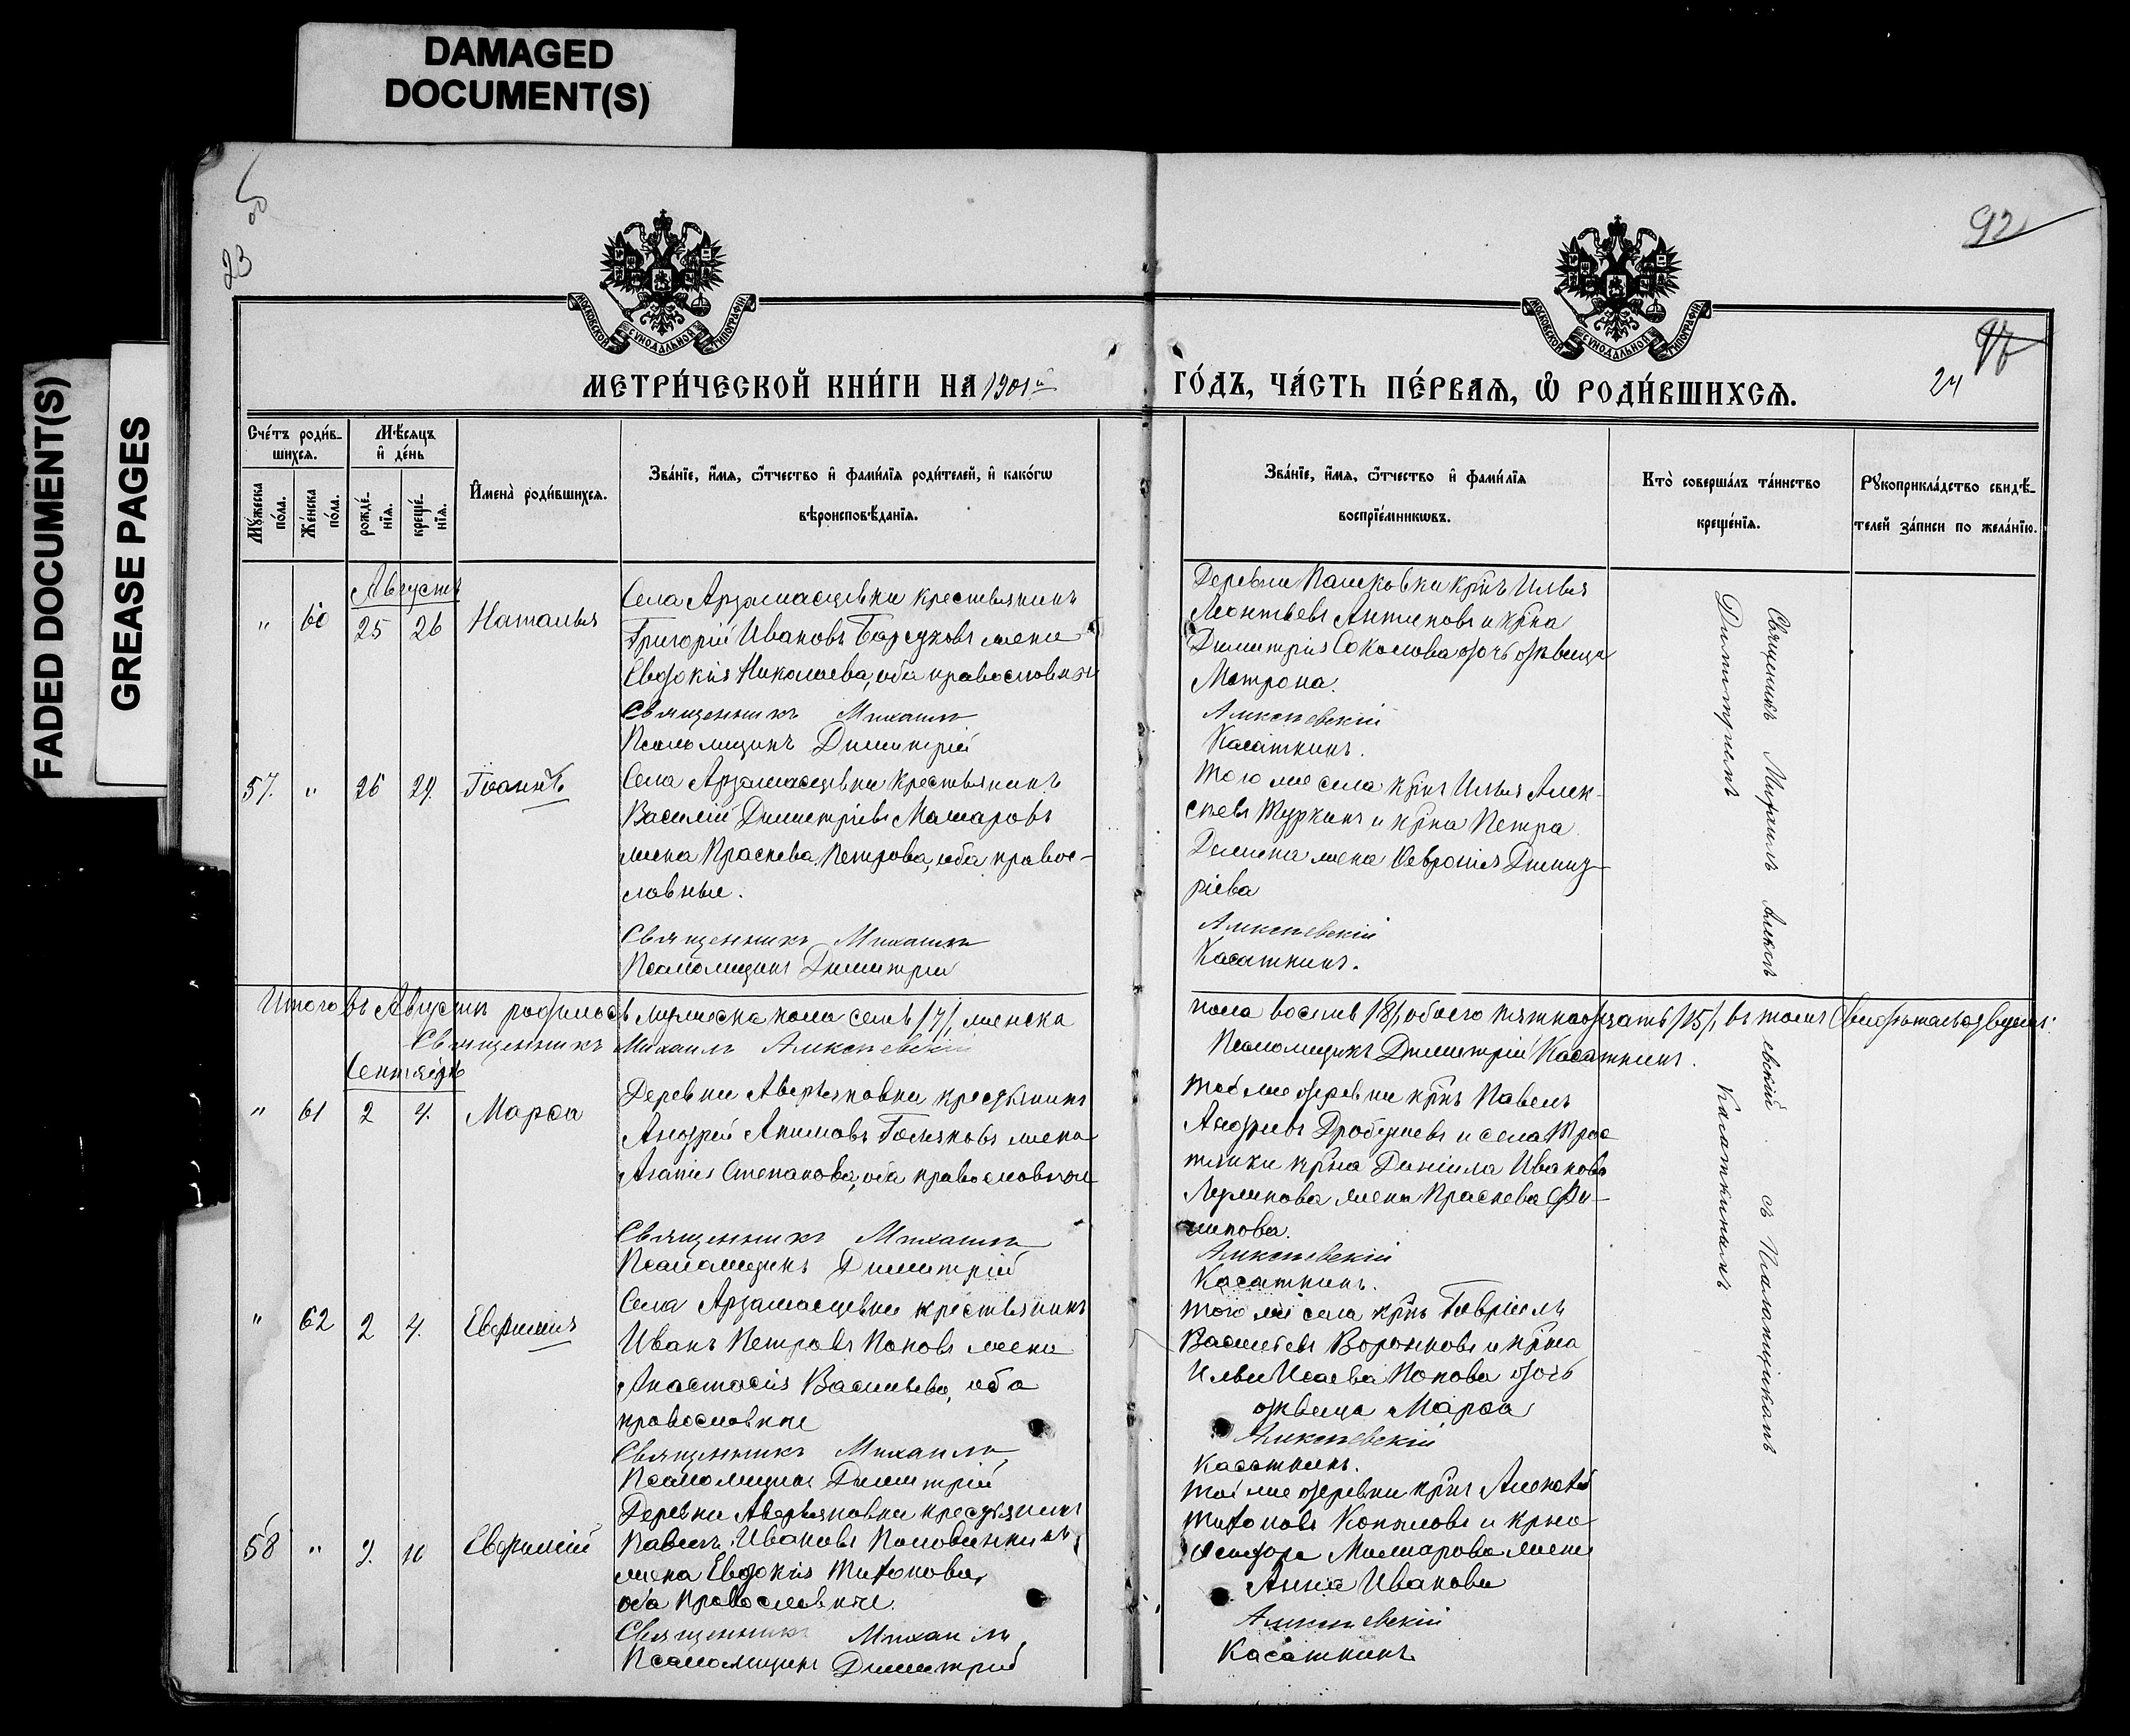 DAMAGED
DOCUMENT(S)
FADED DOCUMENT(S)
GREASE PAGES
23
92
24
МОСКОВСКОЙ СѴНОДАЛЬНОЙ ТИПОГРАФІИ
МОСКОВСКОЙ СѴНОДАЛЬНОЙ ТИПОГРАФІИ
МЕТРИ́ЧЕСКОЙ КНИ́ГИ НА 1901й
ГО́ДЪ, ЧА́СТЬ ПЕ́РВАѦ, Ѡ РОДИ́ВШИХСѦ.
Сче́тъ роди́в-
шихсѧ.
Мꙋ́жеска по́ла.
Же́нска по́ла.
Мѣ́сѧцъ
и҆ де́нь
рожде́-
нїѧ.
креще́-
нїѧ.
И҆мена̀ роди́вшихсѧ.
Зва́нїе, и҆́мѧ, ѻ҆́тчество и҆ фами́лїѧ роди́телей, и҆ како́гѡ
вѣроисповѣ́данїѧ.
Зва́нїе, и҆́мѧ, ѻ҆́тчество и҆ фами́лїѧ
воспрїе́мникѡвъ.
Кто̀ соверша́лъ та́инство
креще́нїѧ.
Рꙋкоприкла́дство свидѣ́-
телей за́писи по жела́нїю.
Августъ
" 60 25 26 Наталья
Села Арзамасцевки крестьянинъ
Григорій Ивановъ Барсуковъ жена
Евдокія Николаева, оба православные
Священникъ Михаилъ
Псаломщикъ Димитрій
Деревни Пашковки кр̃нъ Илья
Леонтьевъ Антиповъ и кр̃на
Димитрія Соколова дочь дѣвица
Матрона.
Алексѣевскій
Касаткинъ.
57. " 26 29. Іоаннъ
Села Арзамасцевки крестьянинъ
Василій Димитріевъ Машаровъ
жена Праскева Петрова, оба правос-
лавные.
Священникъ Михаилъ
Псаломщикъ Димитрій
Того же села кр̃нъ Илья Алек-
сѣевъ Журкинъ и кр̃на Петра
Демина жена Феврония Димит-
ріева
Алексѣевскій
Касаткинъ.
Итого въ Августѣ родилось мужеска пола семь /7/, женска
пола восемь /8/, обоего пятнадцать /15/, въ томъ свидѣтельствуемъ:
Священникъ Михаилъ Алексѣевскій
Псаломщикъ Димитрій Касаткинъ.
Сентябрь
" 61 2 4. Марѳа
Деревни Аверьяновки крестьянинъ
Андрей Акимовъ Головъ жена
Агапія Степанова, оба православные
Священникъ Михаилъ
Псаломщикъ Димитрій
Той же деревни кр̃нъ Павелъ
Андреевъ Дробышевъ и села Трос-
тянки кр̃на Даніила Иванова
Лужнова жена Праскева Фи-
липова.
Алексѣевскій
Касаткинъ.
" 62 2 4. Евфимія
Села Арзамасцевки крестьянинъ
Иванъ Петровъ Поповъ жена
Анастасія Васильева, оба
православные
Священникъ Михаилъ
Псаломщикъ Димитрій
Того же села кр̃нъ Гавріилъ
Васильевъ Воронковъ и кр̃на
Ильи Исаева Попова дочь
дѣвица Марѳа
Алексѣевскій
Касаткинъ.
58 " 9. 10 Евфимій
Деревни Аверьяновки крестьянинъ
Павелъ Ивановъ Половинкинъ
жена Евдокія Тихонова,
оба православные.
Священникъ Михаилъ
Псаломщикъ Димитрій
Той же деревни кр̃нъ Алексѣй
Тихоновъ Копыловъ и кр̃на
Исидора Машарова жена
Анна Иванова
Алексѣевскій
Касаткинъ
Священникъ Михаилъ Алексѣевскій съ Псаломщикомъ
Димитріемъ Касаткинымъ